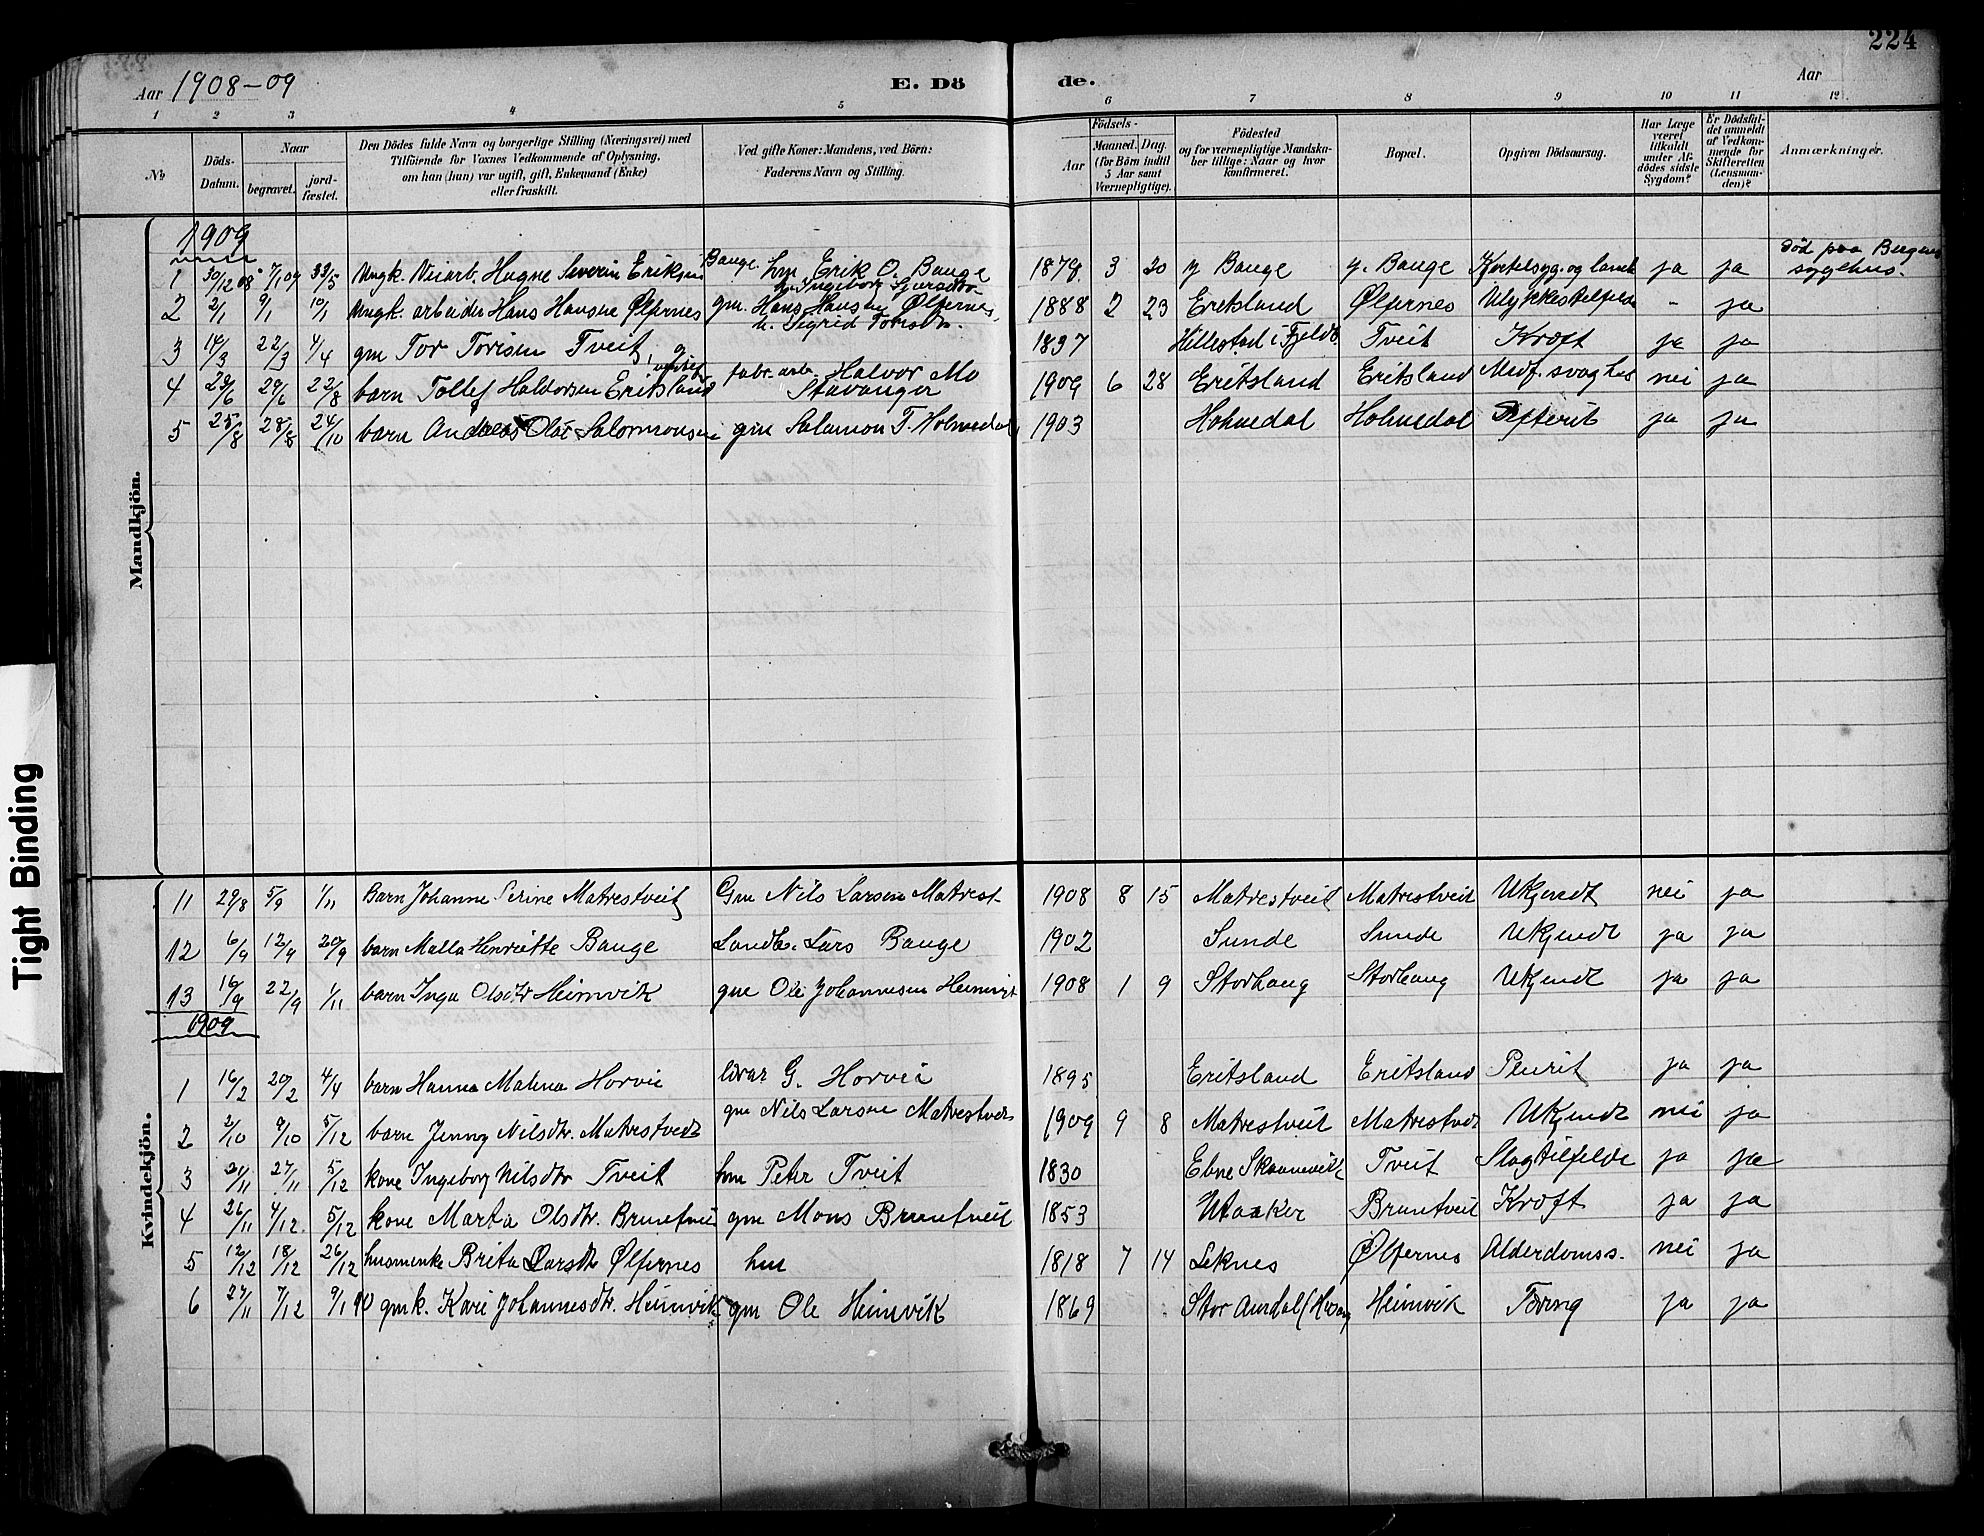 224
Aar 1908-09 E. Dö de. Aar
1 2 3 4 5 6 7 8 9 10 11 12
No Döds-Datum. Naar begravet. jordfæstet. Den Dödes fulde Navn og borgerlige Stilling (Næringsvei) med Tilföiende for Voxnes Vedkommende af Oplysning, om han (hun) var ugift, gift, Enkemand (Enke) eller fraskilt. Ved gifte Koner: Mandens, ved Börn: Faderens Navn og Stilling. Födsels- Aar Maaned. Dag. (for Börn indtil 5 Aar samt Værnepligtige). Födested og for værnepligtige Mandskaber tillige: Naar og hvor konfirmeret. Bopæl. Opgiven Dödsaarsag. Har Læge været tilkaldt under Afdödes sidste Sygdom? Er Dödsfaldet anmeldt af Vedkommende for Skifteretten (Lensmanden)? Anmærkninger.
Mandkjön.
1909
1 30/12 08 7/1 09 Ungk. Veiarb. Hagne Severin Bauge hm Erik O. Bauge 3 20 y Bauge y. Bauge ja ja død paa Bergens sygehus.
2 2/1 9/1 10/1 Ungk. arbeider Hans Hansen Ølfernes gm. Hans Hansen Ølfernes, h. Sigrid 1888 2 23 Eritsland Ølfernes - ja
3 14/3 22/3 4/4 gm Tor Torisen Tveit, 1837 Hillestad i Tveit Kræft ja ja
4 23/6 29/6 22/8 barn Tollef Haldorsen Eritsland fabr. arb. Halvor Mo Stavanger 1909 6 28 Eritsland Eritsland Medf. svaghed nei ja
5 25/8 28/8 24/10 barn Andreas Olai Salomonsen gm Salamon T. Holmedal 1903 Holmedal Holmedal Difterit ja ja
Kvindekjön.
11 29/8 5/9 1/11 Barn Johanne Serine Matrestveit Gm Nils Larsen Matrest- 1908 8 15 Matrestveit Matrestveit Ukjendt nei ja
12 6/9 12/9 20/9 barn Malla Henriette Bauge Landh. Lars Bauge 1902 Sunde Sunde Ukjendt ja ja
13 16/9 22/9 1/11 barn Inga Olsdtr Heimvik gm Ole Johannesen Heimvik 1908 1 9 Storhaug Storhaug Ukjendt ja ja
1909
1 16/2 20/2 4/4 barn Hanna Malena Horvei G. Horvei 1895 Eritsland Eritsland Plurit ja ja
2 2/10 9/10 5/12 barn Jenny Nilsdtr. Matrestvedt gm Nils Larsen Matrestvedt 1909 9 8 Matrestveit Matrestvedt Ukjendt nei ja
3 21/11 27/11 5/12 kone Ingeborg Nilsdtr Tveit hm Peter Tveit 1830 Ebne Skaanevik Tveit Slagtilfelde ja ja
4 26/11 4/12. 5/12 kone Marta Olsdtr. Bruntveit gm Mons Bruntveit 1853 Utaaker Bruntveit Kræft ja ja
5 12/12 18/12 26/12 husmenke Brita Larsdtr Ølfernes hm 1818 7 14 Leknes Ølfernes Alderdomss. nei ja
6 27/11 7/12 9/1 10 gmk. Kari Johannesdtr. Heimvik gm Ole Heimvik 1869 Stor Heimvik Tæring ja ja
Tight Binding